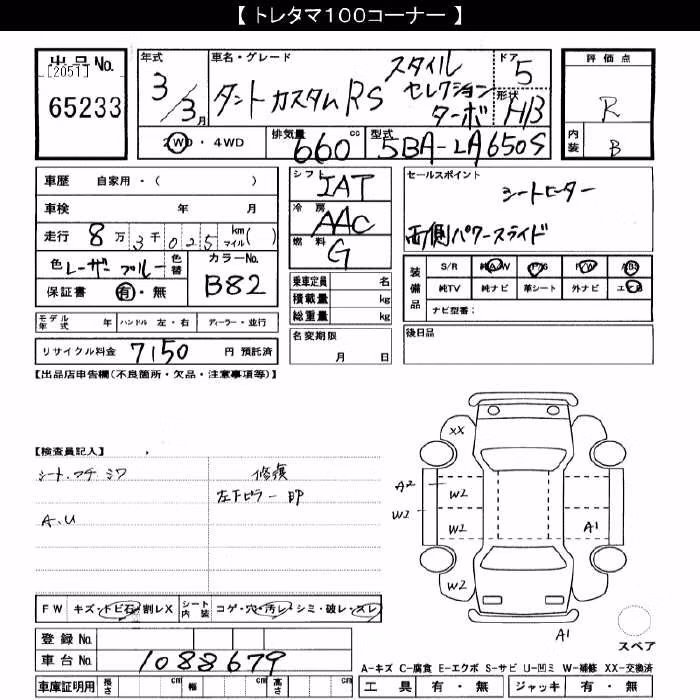 【 トレタマ100コーナー 】
出品No.
[2051]
65233
年式
3/3月
車名・グレード
タント カスタム RS
スタイル
セレクション
ターボ
ドア
5
形状
HB
評価点
R
内装
B
2WD・4WD
排気量
660 cc
型式
5BA-LA650S
車歴 自家用・( )
車検 年 月
走行 8万3千025 km マイル( )
色 レーザーブルー 色替
カラーNo.
B82
保証書 有・無
シフト
IAT
冷房
AAC
燃料
G
乗車定員 名
積載量 kg
総重量 kg
セールスポイント
シートヒーター
両側パワースライド
装備品
S/R 純AW P/S P/W ABS
純TV 純ナビ 革シート 外ナビ エアB
ナビ型番：
モデル年式 年 ハンドル 左・右 ディーラー・並行
リサイクル料金 7150 円 預託済
名変期限
月 日
後日品
【出品店申告欄(不良箇所・欠品・注意事項等)】
【検査員記入】
シート・ウチ シワ
A.U
修復
左下ピラー
XX
A2
W2
W2
W2
W2
A1
A1
スペア
FW キズ・トビ石・割レX シート内装 コゲ・穴・汚レ・シミ・破レ・スレ
登録No.
車台No. 1088679
車庫証明用 長さ cm 幅 cm 高さ cm
A－キズ C－腐食 E－エクボ S－サビ U－凹ミ W－補修 XX－交換済
工具 有・無 ジャッキ 有・無